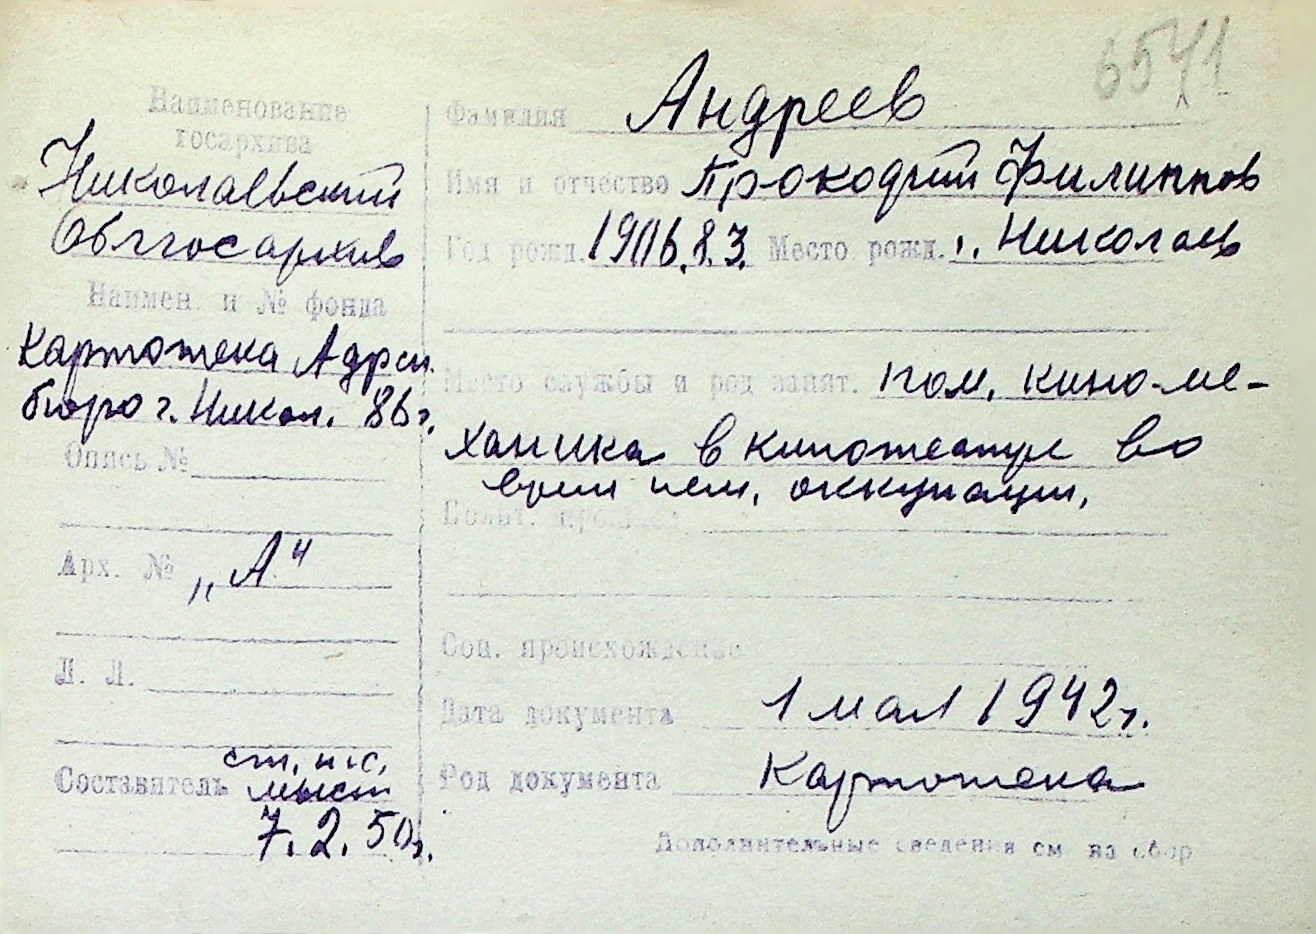 6571
Наименование
госархива
Николаевский
Облгосархив
Наимен. и № фонда
Картотека Адресн.
бюро г. Никол. 86 г.
Опись №
Арх. № „А"
Л. Л.
Составитель ст. н.с.
7.2.50г.
Фамилия Андреев
Имя и отчество Прокофий Филиппов
Год рожд. 1906.8.3. Место рожд. г. Николаев
Место службы и род занят. пом. кино-ме-
ханика в кинотеатре во
время нем. оккупации.
Соц. происхождение
Дата документа 1 мая 1942г.
Род документа Картотека
Дополнительные сведения см на обор